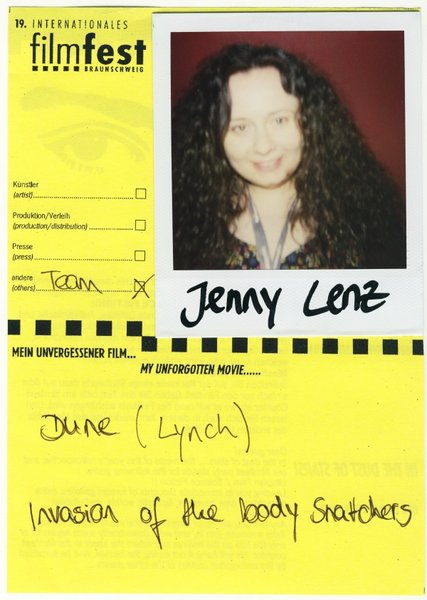 19. INTERNATIONALES
filmfest
BRAUNSCHWEIG
Künstler
(artist)
Produktion/Verleih
(production/distribution)
Presse
(press)
andere
(others) Team
Jenny Lenz
MEIN UNVERGESSENER FILM...
MY UNFORGOTTEN MOVIE......
Dune (Lynch)
Invasion of the body snatchers